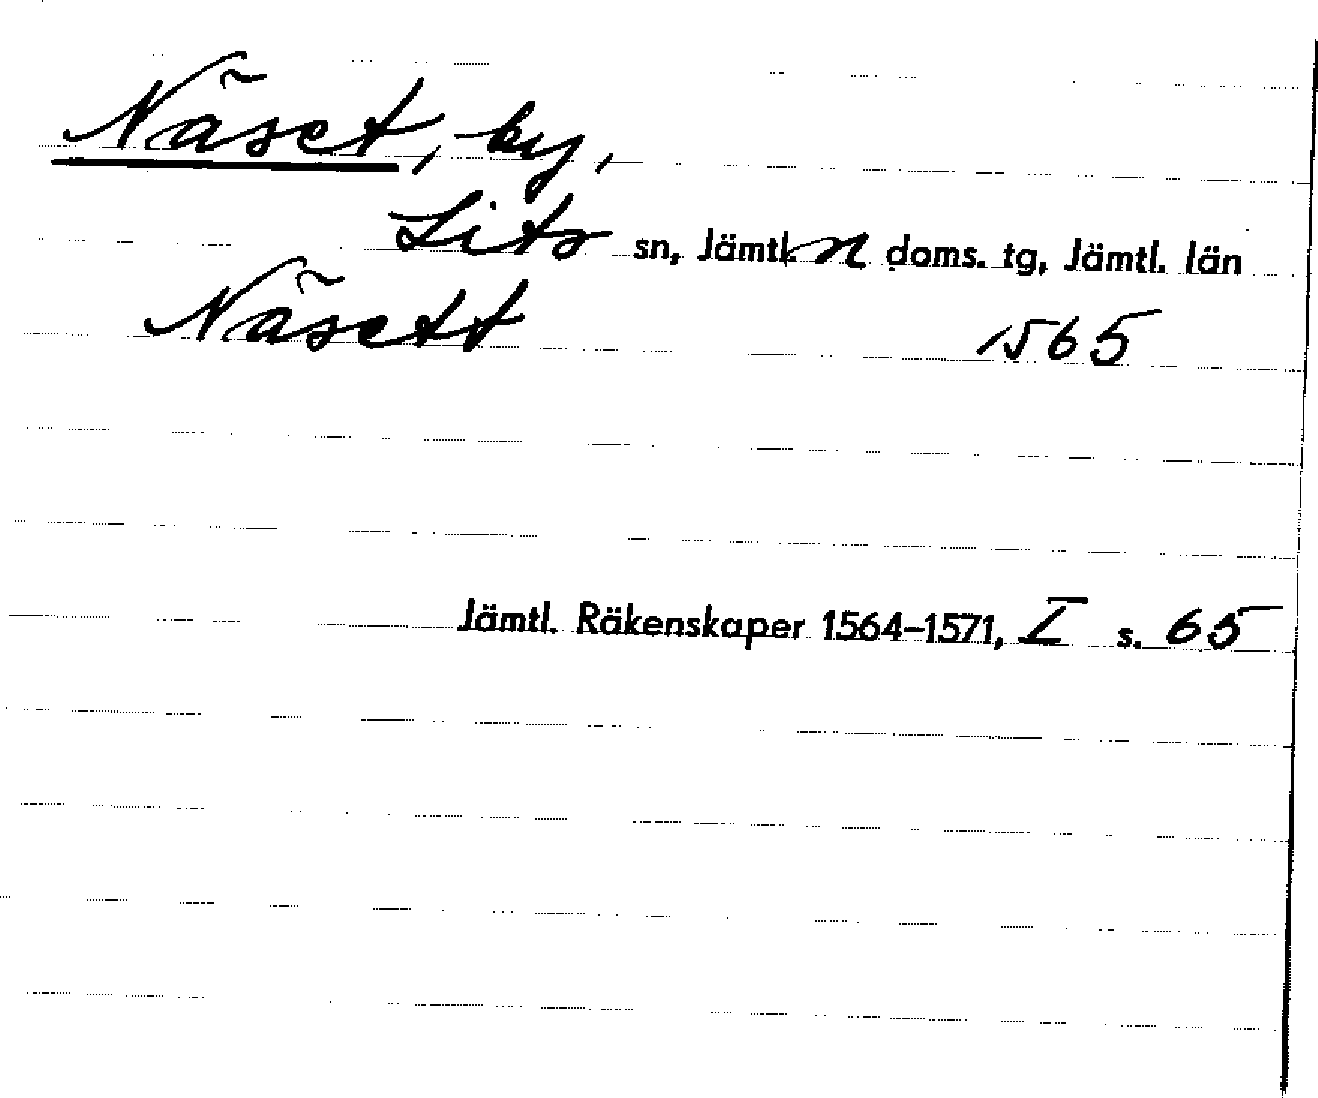 Näset, by,
Lits sn, Jämtl. n doms. tg, Jämtl. län
Näsett 1565
Jämtl. Räkenskaper 1564-1571, I s. 65